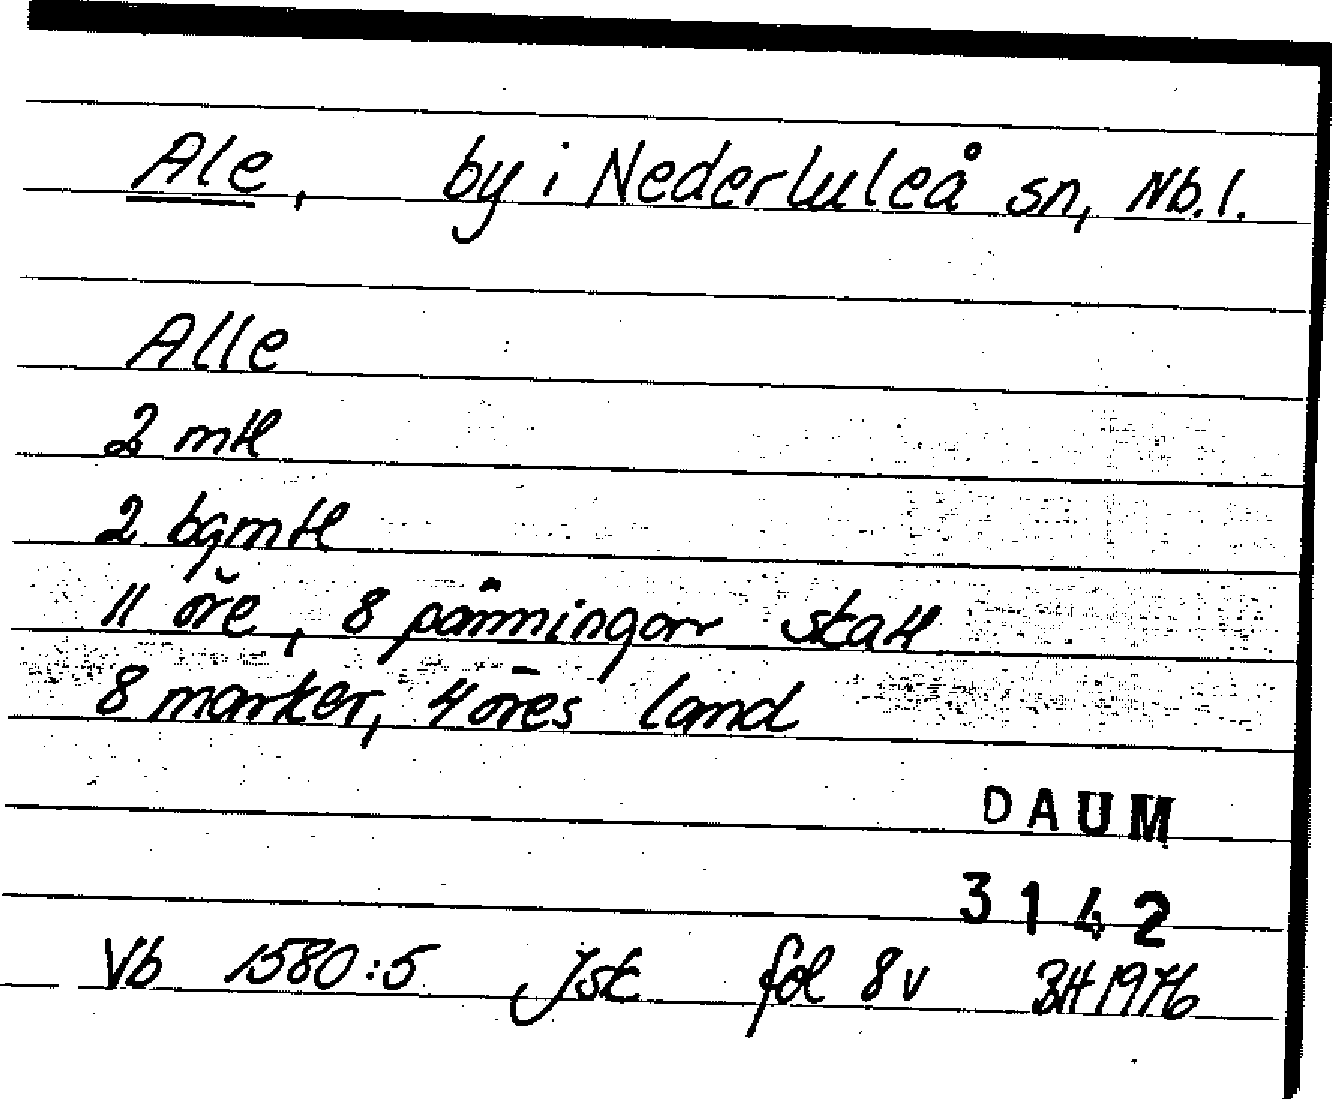 Ale, by i Nederluleå sn, Nb.l.
Alle
2 mtl
2 bgmtl
11 öre, 8 pänningar skatt
8 marker, 4 öres land
DAUM
3142
Vb 1580:5 Jsk fol 8v BH 1976